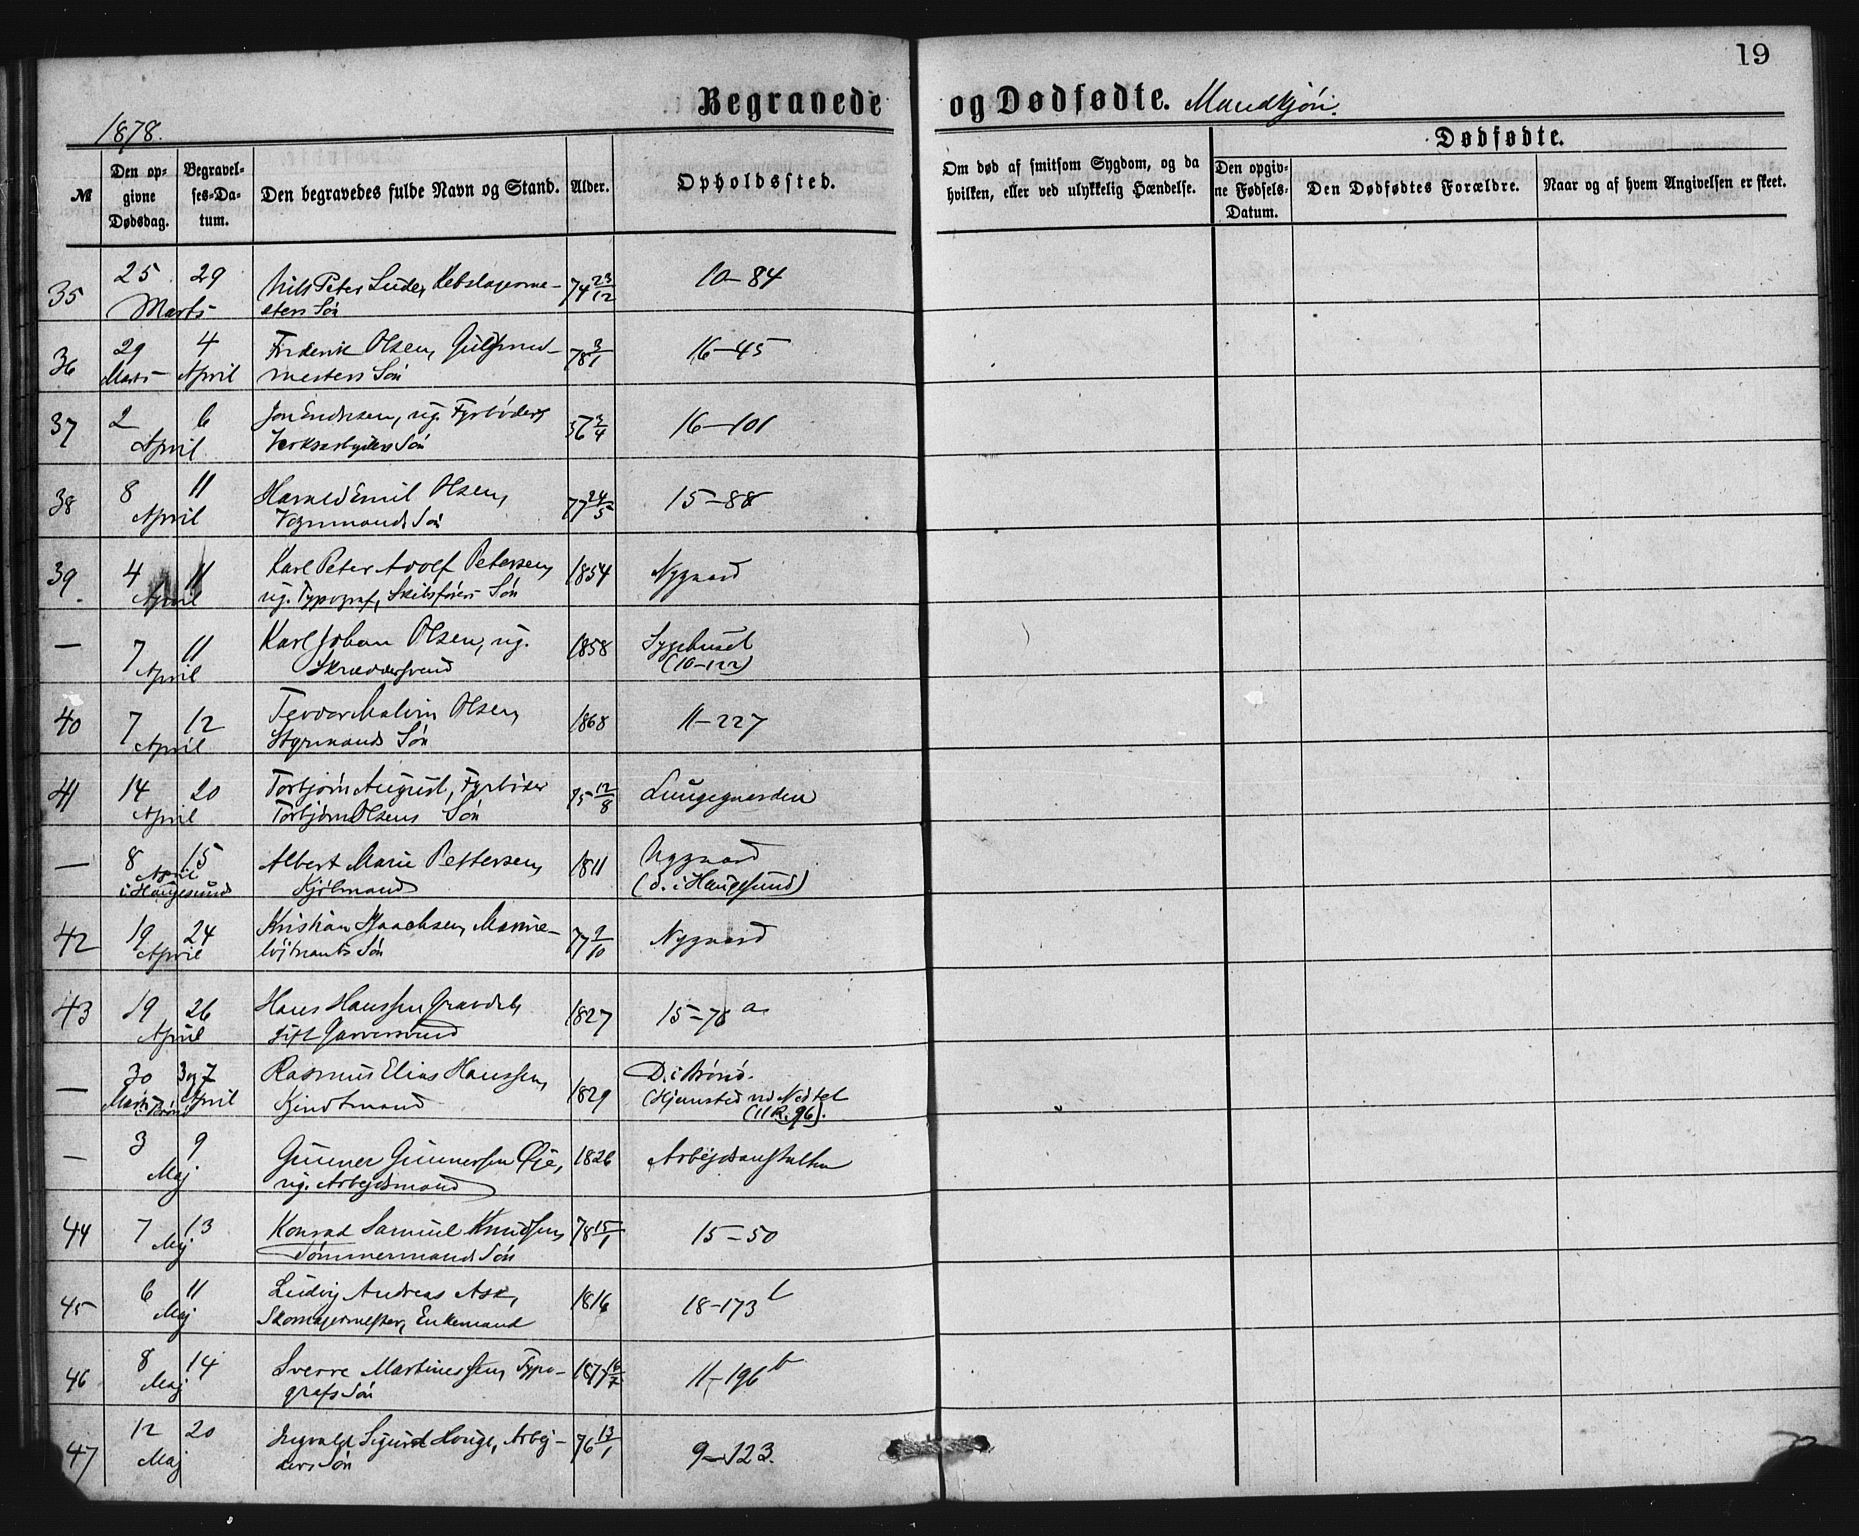 19
Begravede og Dødfødte. Mandkjøn.
1878.
Dødfødte.
№
Den opgivne Dødsdag.
Begravelses-Datum.
Den begravedes fulde Navn og Stand.
Alder.
Opholdssted.
Om død af smitsom Sygdom, og da hvilken, eller ved ulykkelig Hændelse.
Den opgivne Fødsels-Datum.
Den Dødfødtes Forældre.
Naar og af hvem Angivelsen er skeet.
35 25 29 Nils Peter Lude, Rebslagerme- 74 23/12 10-84
Marts sters Søn
36 29 4 Frederik Olsen, Guldsmed- 78 3/1 16-45
Marts April mesters Søn
37 2 6 Jon Endresen, ug. Fyrbøder, 56 3/4 16-101
April Søn
38 8 11 Harald Emil Olsen, 77 24/5 15-88
April Vognmands Søn
39. 4 11 Karl Peter Adolf Petersen, 1854 Nygaard
April ug. Typograf, Skibsførers Søn
— 7 11 Karl Johan Olsen, ug. 1858 Sygehuset
April Skræddersvend (10-122)
40 7 12 Tevdor Malvin Olsen, 1868 11-227
April Styrmands Søn
41 14 20 Torbjørn August, Fyrbøder 75 12/8 Lungegaarden
April Torbjørn Olsens Søn
— 8 15 Albert Marie Pettersen, 1811 Nygaard
April Kjølmand (d. i Haugesund)
i Haugesund
42 19 24 Kristian Isaachsen, Marine- 77 9/10 Nygaard
April løjtnants Søn
43 19 26 Hans Hanssen Gravdal, 1827 15-78 a
April gift Garversvend
— 30 3 og 7 Rasmus Elias Hanssen, 1829 D. i Brønd.
Marts April Kjendtmand (Hjemsted ved Nedtel
(11 R. 96).
— 3 9 Gunner Gunnersen Øje, 1826 Arbejdsanstalten
Maj ug. Arbejdsmand
44 7 13 Konrad Samuel Knudsen, 78 15/1 15-50
Maj Tømmermands Søn
45 6 11 Ludvig Andreas Ask, 1816 18-173 b
Maj Skomagermester, Enkemand
46 8 14 Sverre Martinessen, Typo- 1877 16/7 11-196 b
Maj grafs Søn
47 12 20 Ingvald Sigurd Houge, Arbej- 76 13/1 9-123.
Maj ders Søn